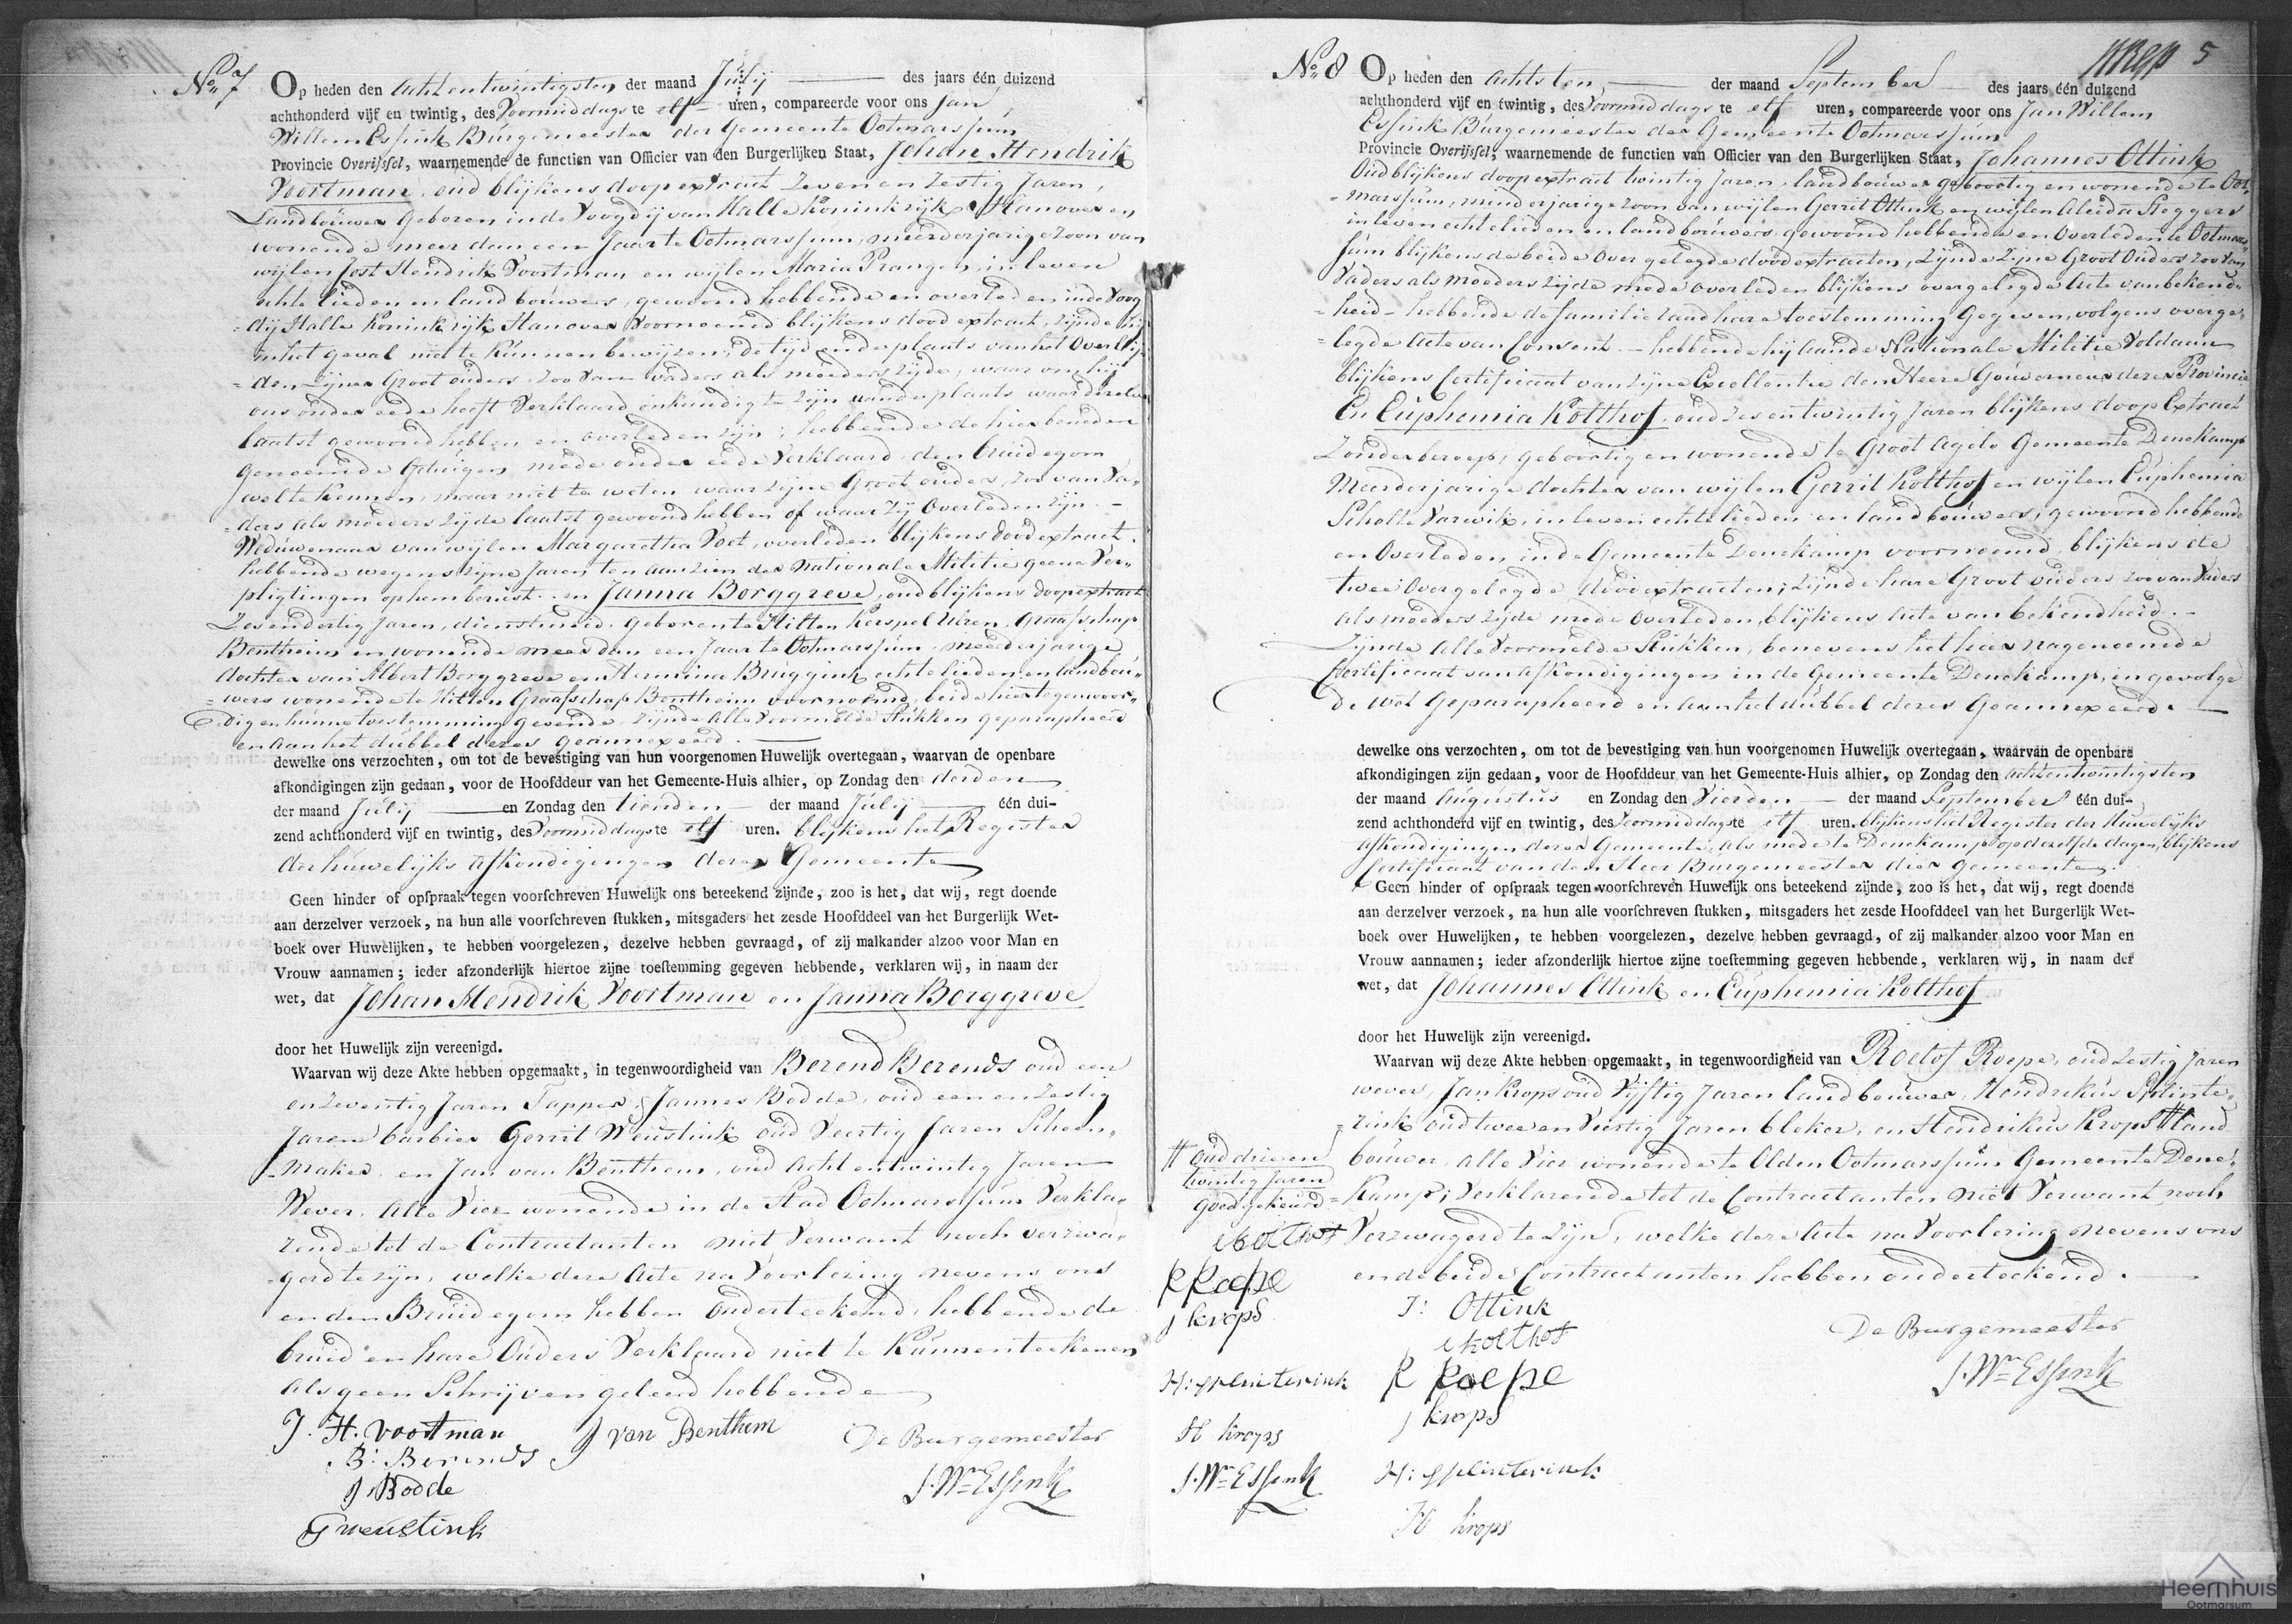 No. 7 Op heden den achtentwintigsten der maand Julij des jaars één duizend
achthonderd vijf en twintig, des Voormiddags te elf uren, compareerde voor ons Jan
Willem Essink Burgemeester der Gemeente Ootmarssum
Provincie Overijssel, waarnemende de functien van Officier van den Burgerlijken Staat, Johan Hendrik
Voortman, oud blijkens doopextract Zeven en Zestig Jaren,
Landbouwer Geboren in de Voogdij van Halle Koninkrijk Hanover en
wonende meer dan een Jaar te Ootmarssum, meerderjarige Zoon van
wijlen Jost Hendrik Voortman en wijlen Maria Prangen, in leven
echte lieden en landbouwers, gewoond hebbende en overleden in de Voog
=dij Halle Koninkrijk Hanover Voornoemd blijkens dood extract, zijnde hij
in het geval niet te kunnen bewijzen, de tijd en de plaats van het Overlij
=den, zijner Groot ouders, zoo van vaders als moeders zijde, waar om hij
ons onder eede heeft Verklaard onkundig te zijn van de plaats waar dezelve
laatst gewoond hebben en overleden zijn; hebbende de hier beneden
genoemde Getuigen mede onder eede Verklaard, den Bruidegom
wel te kennen, maar niet te weten waar zijne Groot ouders, zoo van Va=
=ders als moeders zijde laatst gewoond hebben of waar zij Overleden zijn. –
Weduwenaar van wijlen Margaretha Voet, overleden blijkens doodextract.
hebbende wegens zijne Jaren, ten aanzien der Nationale Militie geene Ver=
pligtingen op hem berust. en Janna Borggreve, oud blijkens doopextract
Zesendertig Jaren, dienstmeid, geboren te Hilten Kerspel Ulzen, Graafschap
Bentheim en wonende meer dan een Jaar te Ootmarssum, meerderjarige
dochter van Albert Borggreve en Hermina Bruggink echte lieden en landbou=
=wers wonende te Hilten Graafschap Bentheim voornoemd, beide hier tegenwoor=
=dig en hunne toestemming gevende. zijnde alle Voormelde Stukken geparapheerd
en aan het dubbel dezes geannexeerd.
dewelke ons verzochten, om tot de bevestiging van hun voorgenomen Huwelijk overtegaan, waarvan de openbare
afkondigingen zijn gedaan, voor de Hoofddeur van het Gemeente-Huis alhier, op Zondag den derden
der maand Julij en Zondag den tienden der maand Julij één dui-
zend achthonderd vijf en twintig, des Voormiddags te elf uren. blijkens het Register
der huwelijks afkondigingen dezer Gemeente
Geen hinder of opspraak tegen voorschreven Huwelijk ons beteekend zijnde, zoo is het, dat wij, regt doende
aan derzelver verzoek, na hun alle voorschreven stukken, mitsgaders het zesde Hoofddeel van het Burgerlijk Wet-
boek over Huwelijken, te hebben voorgelezen, dezelve hebben gevraagd, of zij malkander alzoo voor Man en
Vrouw aannamen; ieder afzonderlijk hiertoe zijne toestemming gegeven hebbende, verklaren wij, in naam der
wet, dat Johan Hendrik Voortman en Janna Borggreve
door het Huwelijk zijn vereenigd.
Waarvan wij deze Akte hebben opgemaakt, in tegenwoordigheid van Berend Berends oud een
en zeventig Jaren Tapper, Jannes Bodde, oud een en zestig
Jaren barbier Gerrit Weustink oud Veertig Jaren Schoen=
=maker, en Jan van Benthem, oud acht entwintig Jaren
Wever. Alle Vier wonende in de Stad Ootmarssum Verkla=
rende tot de Contractanten niet Verwant noch verzwa=
=gerd te zijn, welke deze Acte na Voorlezing nevens ons
en den Bruidegom hebben Onderteekend, hebbende de
bruid en hare Ouders Verklaard niet te kunnen teekenen
als geen Schrijven geleerd hebbende
J. H. Voortman J van Benthem De Burgemeester
B: Berends
J Bodde J. Wm Essink
G weustink
No. 8 Op heden den achtsten der maand September des jaars één duizend 5
achthonderd vijf en twintig, des Voormiddags te elf uren, compareerde voor ons Jan Willem
Essink Burgemeester der Gemeente Ootmarssum
Provincie Overijssel, waarnemende de functien van Officier van den Burgerlijken Staat, Johannes Ottink
Oud blijkens doopextract twintig Jaren, landbouwer geboortig en wonende te Oot=
=marssum, minderjarige zoon van wijlen Gerrit Ottink en wijlen Aleida Steggers
in leven echtelieden en landbouwers, gewoond hebbende en Overleden te Ootmars=
sum blijkens de beide Overgelegde doodextracten, Zijnde Zijne Groot Ouders zoo van
Vaders als Moeders zijde mede overleden blijkens overgelegde Acte van bekend=
=heid – hebbende de familieraad hare toestemming gegeven, volgens overge=
=legde Acte van Consent. – hebbende hij aan de Nationale Militie Voldaan
blijkens Certificaat van zijne Excellentie den Heere Gouverneur dezer Provincie
En Euphemia Kotthof, oud Zes en twintig Jaren blijkens doop Extract
Zonder beroep, geboortig en wonende te Groot Agelo Gemeente Denekamp
Meerderjarige dochter van wijlen Gerrit Kotthof en wijlen Euphemia
Scholte Varwik, in leven echtelieden en landbouwers, gewoond hebbende
en Overleden in de Gemeente Denekamp voornoemd, blijkens de
twee Overgelegde doodextracten; zijnde hare Groot ouders zoo van Vaders
als moeders zijde mede Overleden, blijkens Acte van bekendheid. –
Zijnde Alle Voormelde Stukken, benevens het hier nagenoemde
Certificaat van Afkondigingen in de Gemeente Denekamp, ingevolge
de wet Geparapheerd en aan het dubbel dezes Geannexeerd. –
dewelke ons verzochten, om tot de bevestiging van hun voorgenomen Huwelijk overtegaan, waarvan de openbare
afkondigingen zijn gedaan, voor de Hoofddeur van het Gemeente-Huis alhier, op Zondag den achtentwintigsten
der maand Augustus en Zondag den Vierden der maand September één dui-
zend achthonderd vijf en twintig, des Voormiddags te elf uren. blijkens het Register der Huwelijks
afkondigingen dezer Gemeente, als mede te Denekamp op dezelfde dagen, blijkens
Certificaat van den Heer Burgemeester dier Gemeente.
Geen hinder of opspraak tegen voorschreven Huwelijk ons beteekend zijnde, zoo is het, dat wij, regt doende
aan derzelver verzoek, na hun alle voorschreven stukken, mitsgaders het zesde Hoofddeel van het Burgerlijk Wet-
boek over Huwelijken, te hebben voorgelezen, dezelve hebben gevraagd, of zij malkander alzoo voor Man en
Vrouw aannamen; ieder afzonderlijk hiertoe zijne toestemming gegeven hebbende, verklaren wij, in naam der
wet, dat Johannes Ottink en Euphemia Kotthof
door het Huwelijk zijn vereenigd.
Waarvan wij deze Akte hebben opgemaakt, in tegenwoordigheid van Roelof Roepe, oud zestig Jaren
wever, Jan Krops oud Vijftig Jaren landbouwer, Hendrikus Splinte=
=rink oud twee en Veertig Jaren bleker, en Hendrikus Krops # land
bouwer, alle Vier wonende te Olden Ootmarssum Gemeente Dene=
=kamp, Verklarende tot de Contractanten niet Verwant noch
Verzwagerd te zijn, welke deze Acte na Voorlezing nevens ons
en de beide Contractanten hebben onderteekend.
# oud drie en
twintig Jaren
goedgekeurd =
e kolthof
R Roepe
J krops
H: splinterink
H Krops
J. Wm Essink
J: Ottink
e kolthof
R Roepe
J krops
H: splinterink
H Krops
De Burgemeester
J. Wm Essink
Heemhuis
Ootmarsum